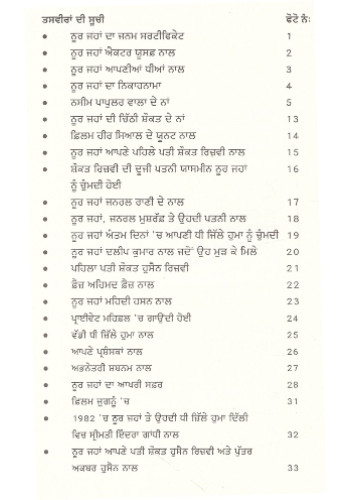 ਤਸਵੀਰਾਂ ਦੀ ਸੂਚੀ ਫੋਟੋ ਨੰ:
• ਨੂਰ ਜਹਾਂ ਦਾ ਜਨਮ ਸਰਟੀਫਿਕੇਟ 1
• ਨੂਰ ਜਹਾਂ ਐਕਟਰ ਯੂਸਫ਼ ਨਾਲ 2
• ਨੂਰ ਜਹਾਂ ਆਪਣੀਆਂ ਧੀਆਂ ਨਾਲ 3
• ਨੂਰ ਜਹਾਂ ਦਾ ਨਿਕਾਹਨਾਮਾ 4
• ਨਸੀਮ ਪਾਪੂਲਰ ਵਾਲਾ ਦੇ ਨਾਂ 5
• ਨੂਰ ਜਹਾਂ ਦੀ ਚਿੱਠੀ ਸ਼ੌਕਤ ਦੇ ਨਾਂ 13
• ਫ਼ਿਲਮ ਹੀਰ ਸਿਆਲ ਦੇ ਯੂਨਟ ਨਾਲ 14
• ਨੂਰ ਜਹਾਂ ਆਪਣੇ ਪਹਿਲੇ ਪਤੀ ਸ਼ੌਕਤ ਰਿਜ਼ਵੀ ਨਾਲ 15
• ਸ਼ੌਕਤ ਰਿਜ਼ਵੀ ਦੀ ਦੂਜੀ ਪਤਨੀ ਯਾਸਮੀਨ ਨੂਰ ਜਹਾਂ 16
ਨੂੰ ਚੁੰਮਦੀ ਹੋਈ
• ਨੂਰ ਜਹਾਂ ਜਨਰਲ ਰਾਣੀ ਦੇ ਨਾਲ 17
• ਨੂਰ ਜਹਾਂ, ਜਨਰਲ ਮੁਸ਼ਰੱਫ਼ ਤੇ ਉਹਦੀ ਪਤਨੀ ਨਾਲ 18
• ਨੂਰ ਜਹਾਂ ਅੰਤਮ ਦਿਨਾਂ 'ਚ ਆਪਣੀ ਧੀ ਜ਼ਿੱਲੇ ਹੁਮਾ ਨੂੰ ਚੁੰਮਦੀ 19
• ਨੂਰ ਜਹਾਂ ਦਲੀਪ ਕੁਮਾਰ ਨਾਲ ਜਦੋਂ ਉਹ ਮੁੜ ਕੇ ਮਿਲੇ 20
• ਪਹਿਲਾ ਪਤੀ ਸ਼ੌਕਤ ਹੁਸੈਨ ਰਿਜ਼ਵੀ 21
• ਫ਼ੈਜ਼ ਅਹਿਮਦ ਫ਼ੈਜ਼ ਨਾਲ 22
• ਨੂਰ ਜਹਾਂ ਮਹਿਦੀ ਹਸਨ ਨਾਲ 23
• ਪ੍ਰਾਈਵੇਟ ਮਹਿਫ਼ਲ 'ਚ ਗਾਉਂਦੀ ਹੋਈ 24
• ਵੱਡੀ ਧੀ ਜ਼ਿੱਲੇ ਹੁਮਾ ਨਾਲ 25
• ਆਪਣੇ ਪ੍ਰਸ਼ੰਸਕਾਂ ਨਾਲ 26
• ਅਭਨੇਤਰੀ ਸ਼ਬਨਮ ਨਾਲ 27
• ਨੂਰ ਜਹਾਂ ਦਾ ਆਖਰੀ ਸਫ਼ਰ 28
• ਫ਼ਿਲਮ ਜੁਗਨੂੰ 'ਚ 31
• 1982 'ਚ ਨੂਰ ਜਹਾਂ ਤੇ ਉਹਦੀ ਧੀ ਜ਼ਿੱਲੇ ਹੁਮਾ ਦਿੱਲੀ
ਵਿਚ ਸ੍ਰੀਮਤੀ ਇੰਦਰਾ ਗਾਂਧੀ ਨਾਲ 32
• ਨੂਰ ਜਹਾਂ ਆਪਣੇ ਪਤੀ ਸ਼ੌਕਤ ਹੁਸੈਨ ਰਿਜ਼ਵੀ ਅਤੇ ਪੁੱਤਰ
ਅਕਬਰ ਹੁਸੈਨ ਨਾਲ 33